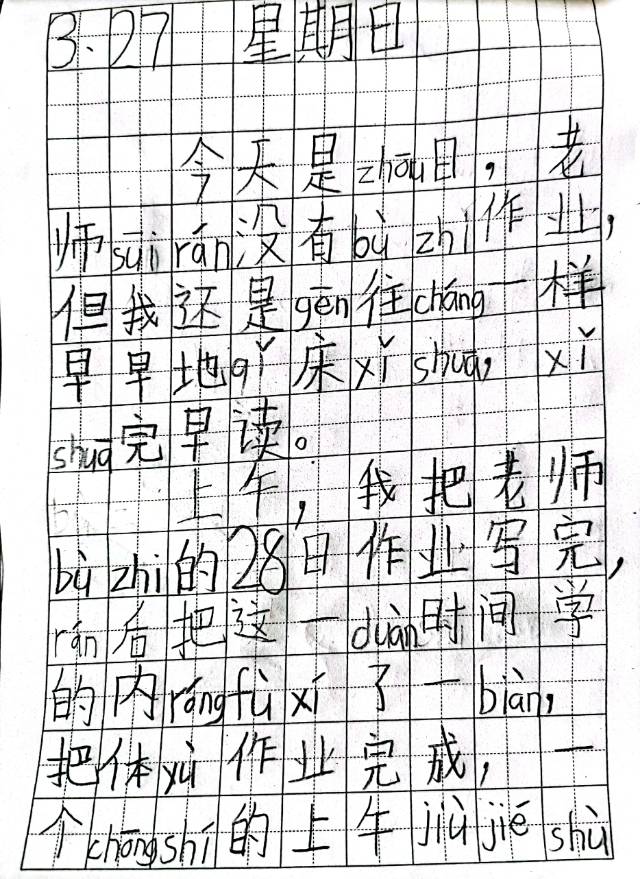 3.27 星期日
今天是zhōu日，老
师suīrán没有bù zhi作业，
但我还是gēn往cháng一样
早早地qǐ床xǐ shuā，xǐ
shuā完早读。
上午，我把老师
bù zhi的28日作业写完，
rán后把这一duàn时间学
的内róngfù xí了一biàn，
把体yù作业完成，一
个chōngshí的上午jiù jié shù